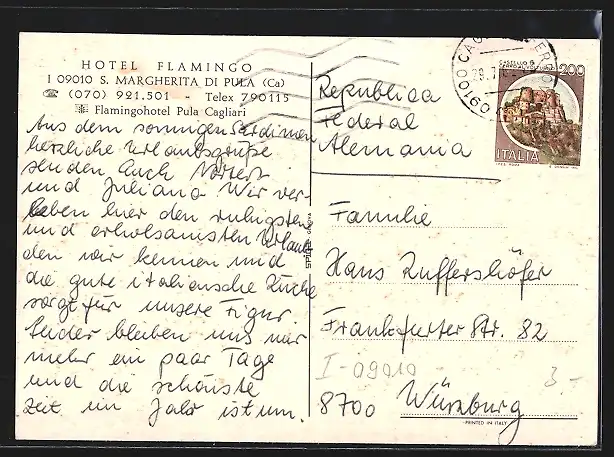 HOTEL FLAMINGO
I 09010 S. MARGHERITA DI PULA (Ca)
☎ (070) 921.501 - Telex 790115
Flamingohotel Pula Cagliari
Aus dem sonnigen Sardinien
herzliche Urlaubsgrüße
senden Euch Norbert
und Juliana. Wir ver-
leben hier den ruhigsten
und erholsamsten Urlaub
den wir kennen und
die gute italienische Küche
sorgt für unsere Figur.
Leider bleiben uns nur
mehr ein paar Tage
und die schönste
Zeit im Jahr ist um.
Republica
Federal
Alemania
Familie
Hans Ruffershöfer
Frankfurter Str. 82
I-09010
3.-
8700 Würzburg
PRINTED IN ITALY
CASTELLO DI
CERRO AL VOLTURNO
200
ITALIA